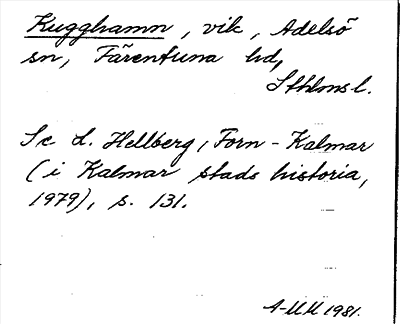 Kugghamn, vik, Adelsö
sn, Färentuna hd,
Sthlms l.
Se L. Hellberg, Forn-Kalmar
(i Kalmar stads historia,
1979), s. 131.
A-MM 1981.